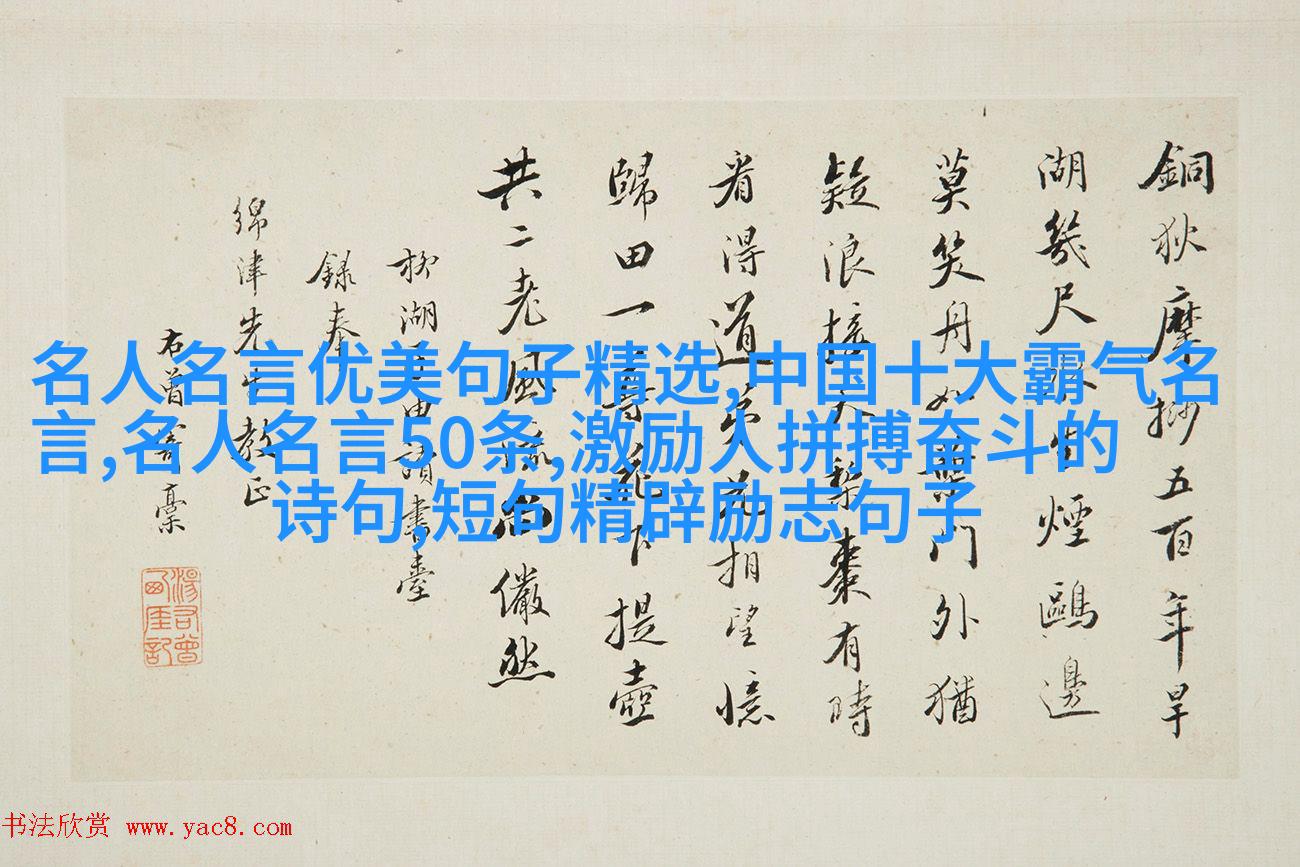 名人名言优美句子精选,中国十大霸气名
言,名人名言50条,激励人拼搏奋斗的
诗句,短句精辟励志句子
銅狄摩挱五百年旱
湖幾尺生煙鷗邊
莫笑丹門外猶
疑浪接天棗有時
看得道花相望憶
歸田一尊下提壺
共二老風流儼然
湖讀書臺
錄奉
綿津先生教正
右曾稾
书法欣赏 www.yac8.com